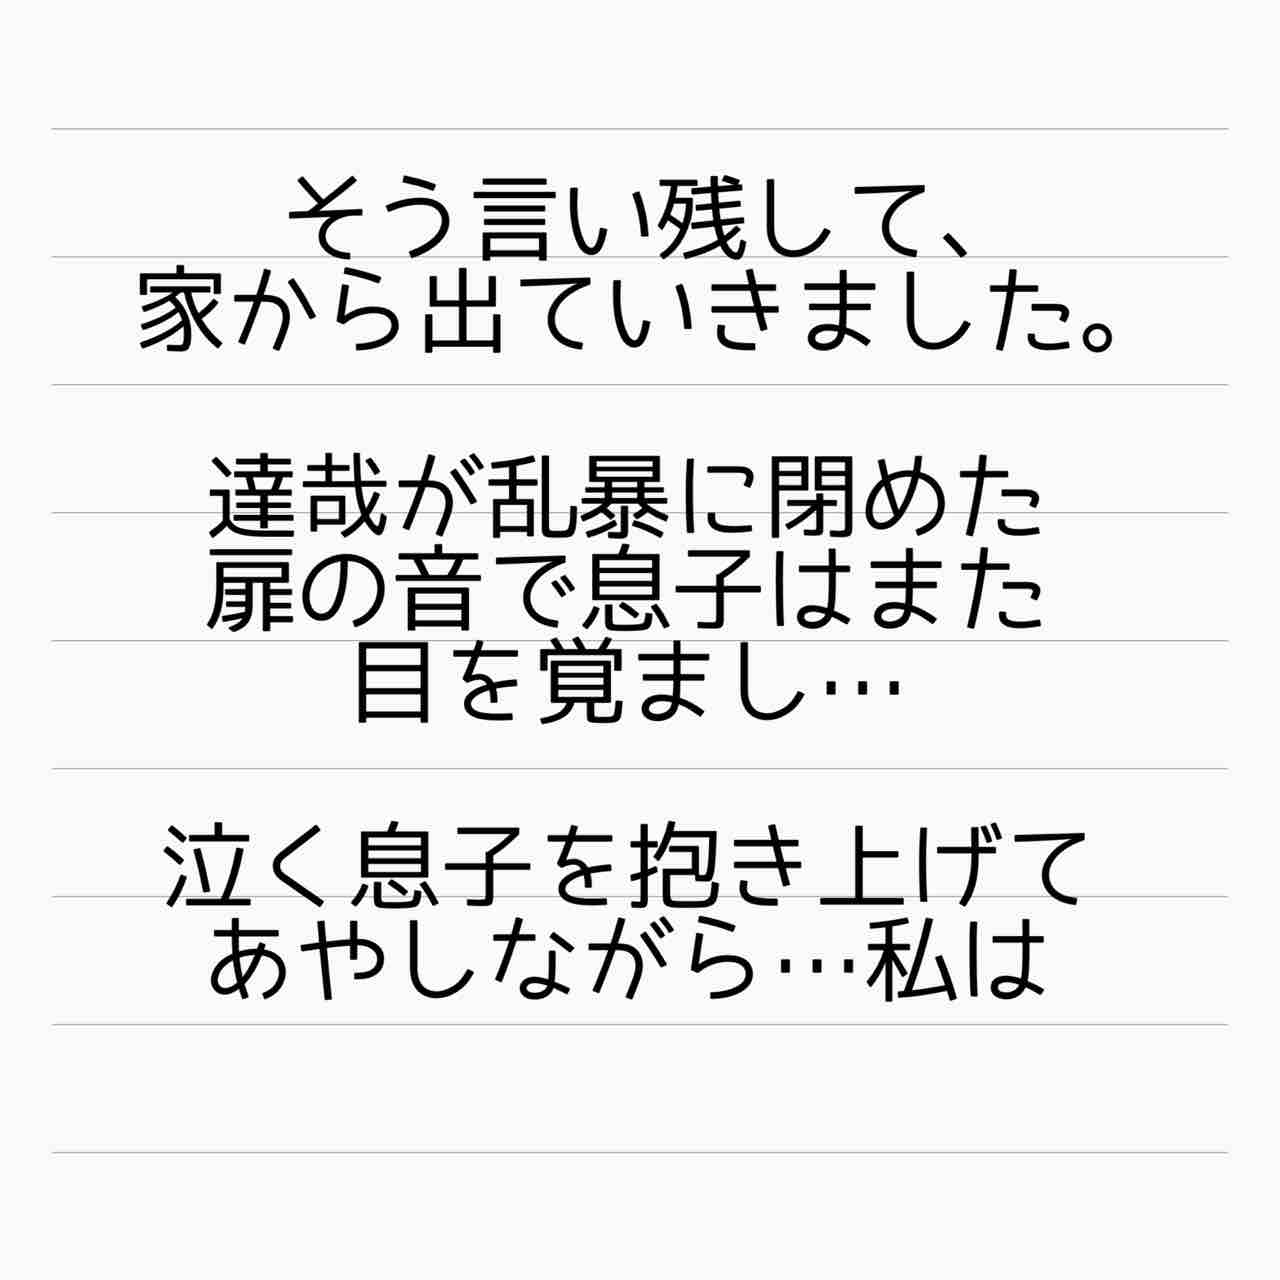 そう言い残して、
家から出ていきました。
達哉が乱暴に閉めた
扉の音で息子はまた
目を覚まし…
泣く息子を抱き上げて
あやしながら…私は